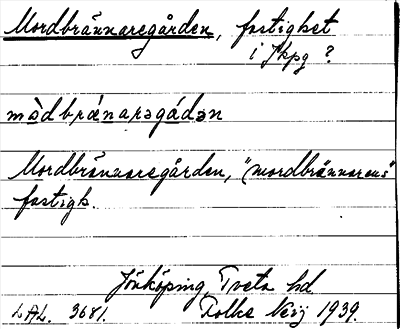 Mordbrännaregården, fastighet
i Jkpg ?
mòdbrǽnarəgádən
Mordbrännaregården, "mordbrännarens"
fastigh.
Jönköping, Tveta hd
LAL. 3681. Folke Neij 1939.